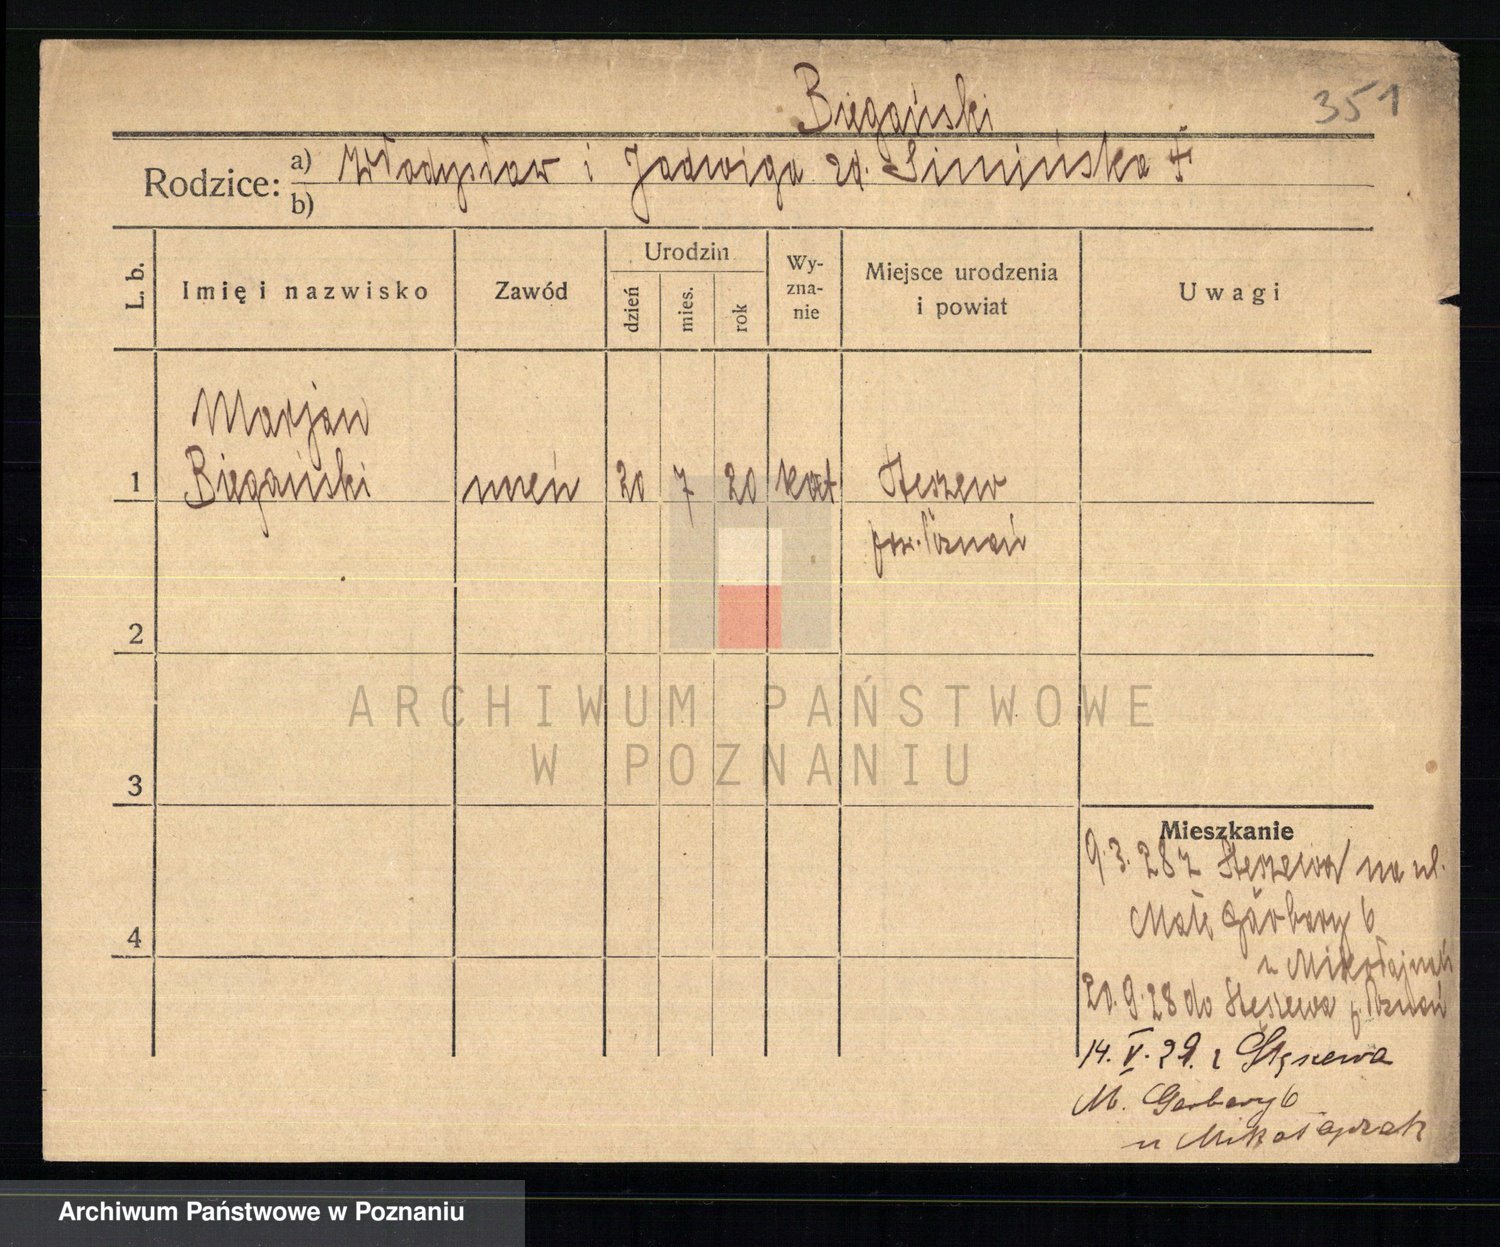 351
Biegański
Rodzice: a) Władysław i Jadwiga zd. Simińska †
b)
L. b.
Imię i nazwisko
Zawód
Urodzin
dzień
mies.
rok
Wy-
zna-
nie
Miejsce urodzenia
i powiat
Uwagi
Marjan
1 Biegański uczeń 20 7 20 kat Stęszew
pow. Poznań
2
3
4
Mieszkanie
9.3.28 z Stęszewa na ul.
Małe Garbary 6
u
20.9.28 do Stęszewa p. Poznań
14. V. 29. z Stęszewa
M. Garbary 6
u Mikołajczak
ARCHIWUM PAŃSTWOWE
W POZNANIU
Archiwum Państwowe w Poznaniu